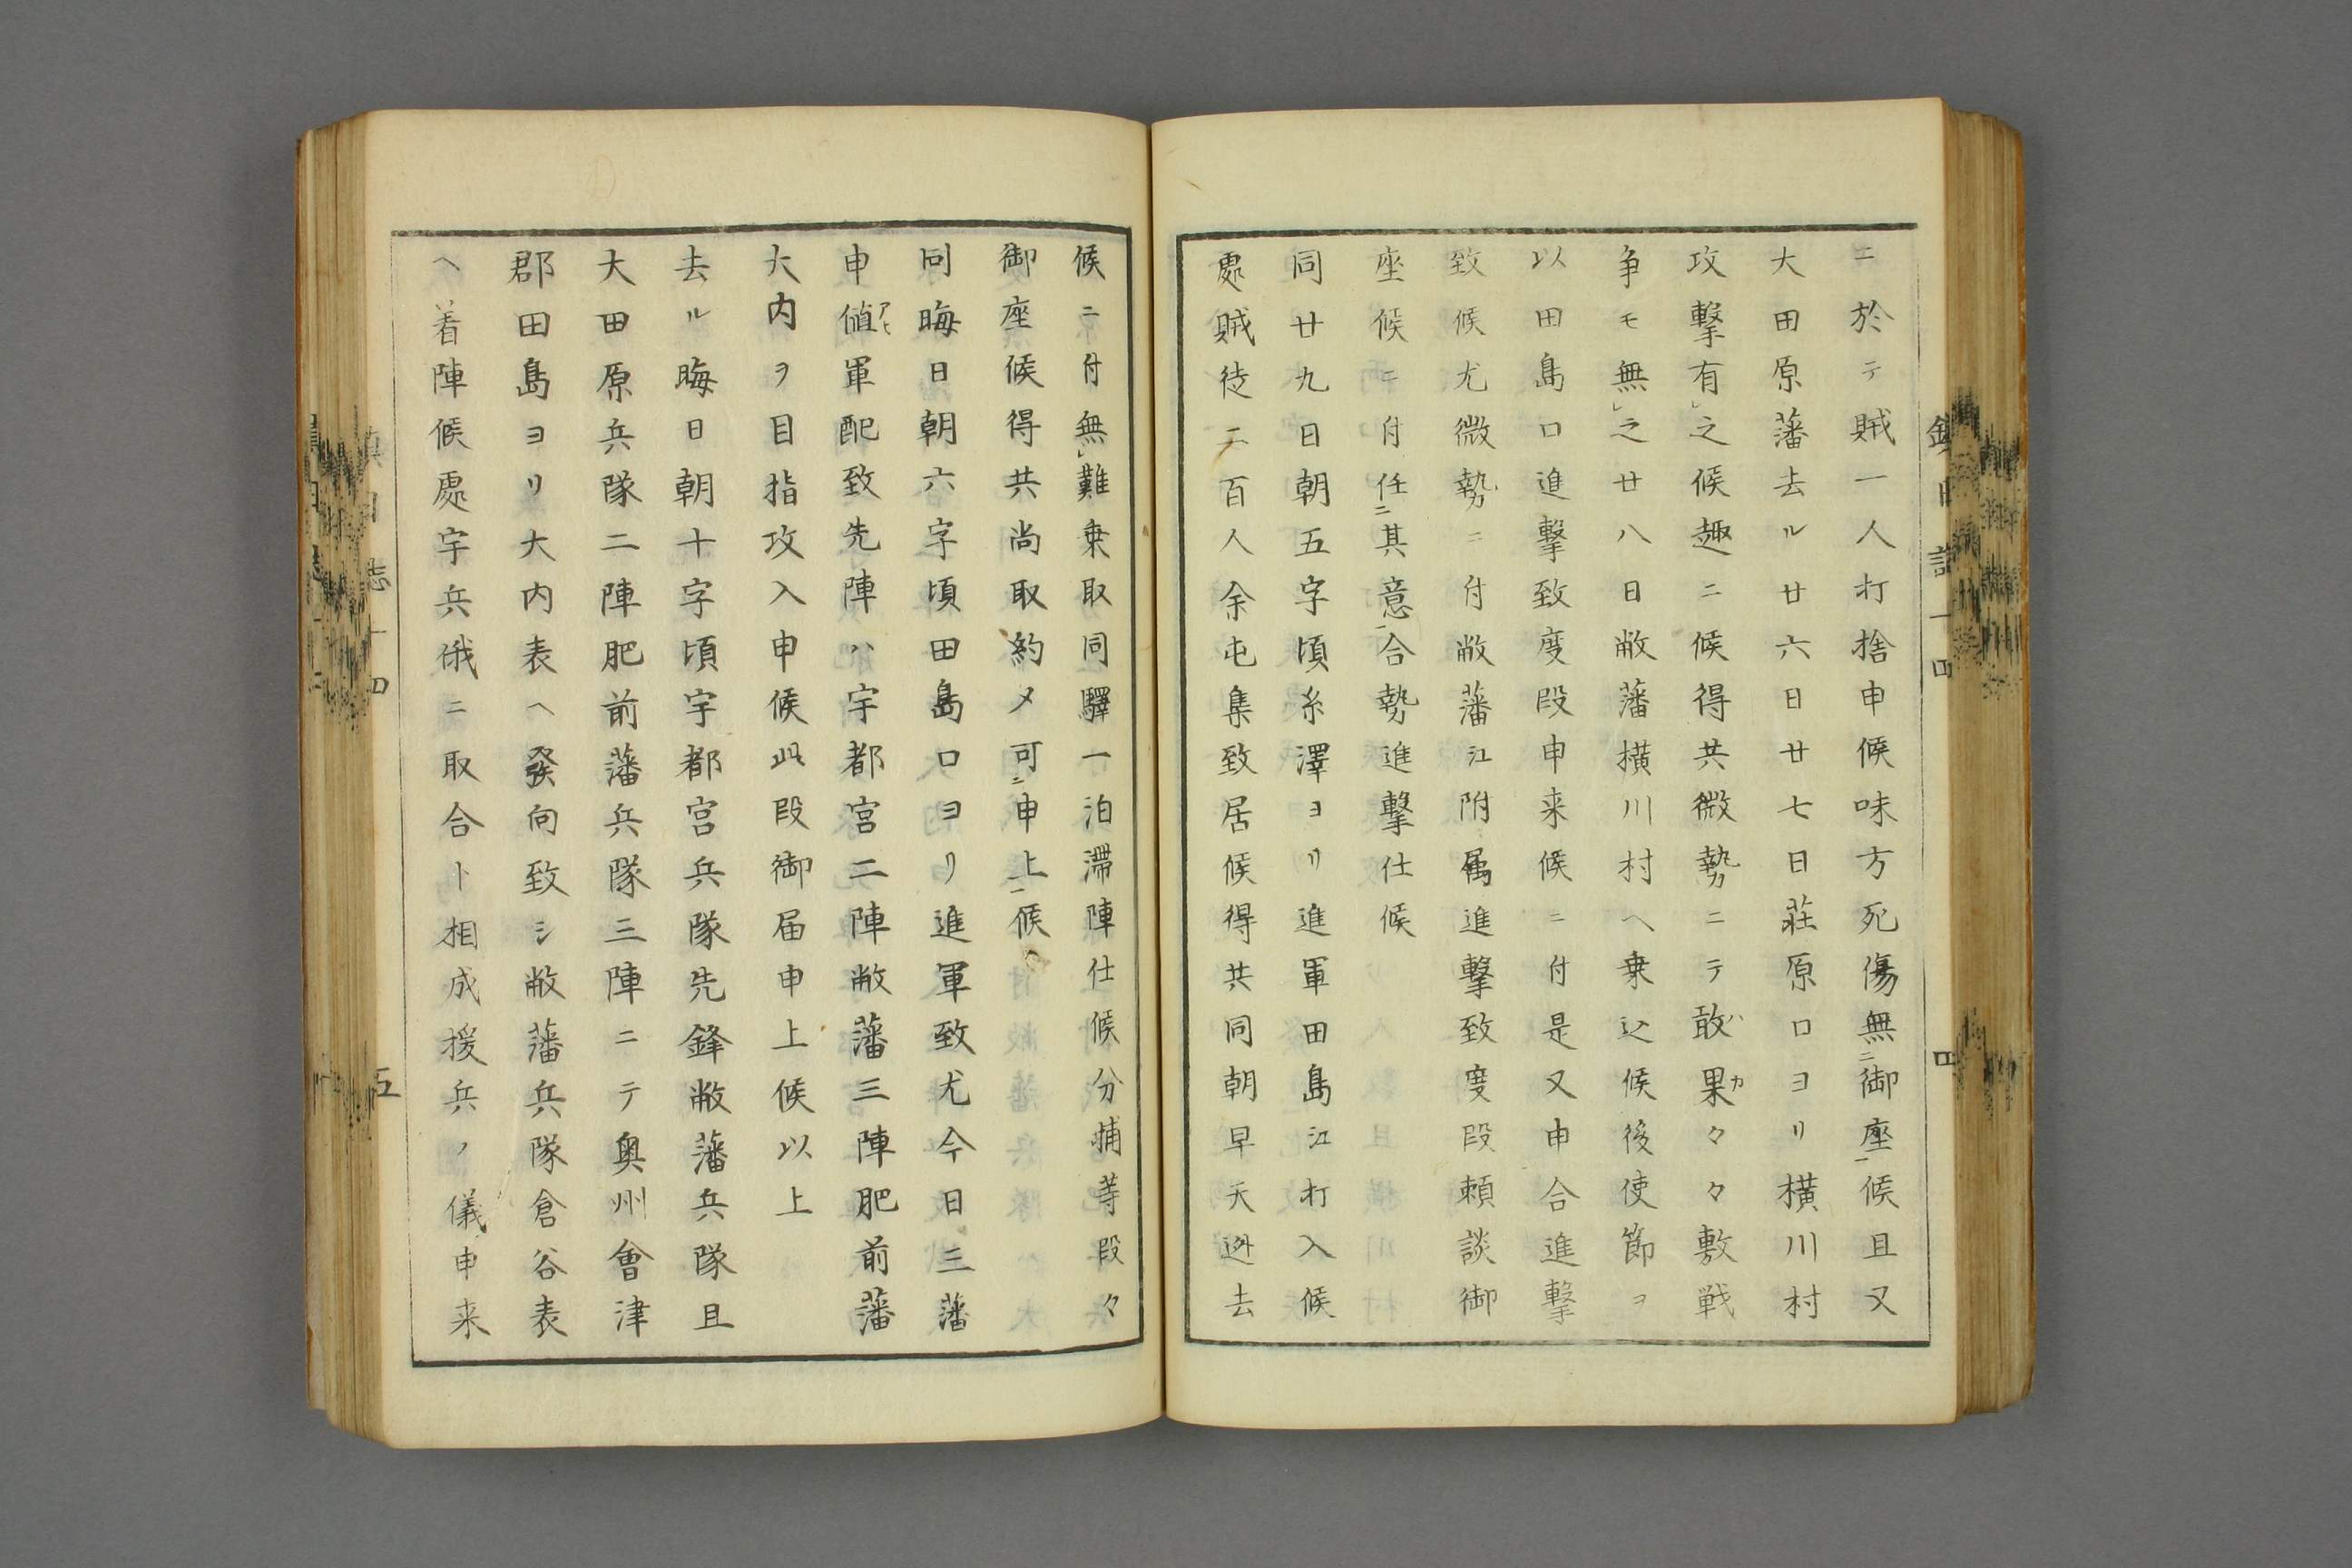 ニ於テ賊一人打捨申候味方死傷無ニ御座一候且又
大田原藩去ル廿六日廿七日莊原口ヨリ横川村
攻撃有レ之候趣ニ候得共微勢ニテ敢ハ果カ々々敷戦
争モ無レ之廿八日敝藩横川村ヘ乗込候後使節ヲ
以田島口進撃致度段申来候ニ付是又申合進撃
致候尤微勢ニ付敝藩江附属進撃致度段頼談御
座候ニ付任ニ其意一合勢進撃仕候
同廿九日朝五字頃糸澤ヨリ進軍田島江打入候
處賊徒二百人余屯集致居候得共同朝早天逃去
候ニ付無レ難乗取同驛一泊滞陣仕候分捕等段々
御座候得共尚取約メ可ニ申上一候
同晦日朝六字頃田島口ヨリ進軍致尤今日三藩
申値アヒ軍配致先陣ハ宇都宮二陣敝藩三陣肥前藩
大内ヲ目指攻入申候此段御届申上候以上
去ル晦日朝十字頃宇都宮兵隊先鋒敝藩兵隊且
大田原兵隊二陣肥前藩兵隊三陣ニテ奥州會津
郡田島ヨリ大内表ヘ發向致シ敝藩兵隊倉谷表
ヘ着陣候處宇兵俄ニ取合ト相成援兵ノ儀申来
四
五